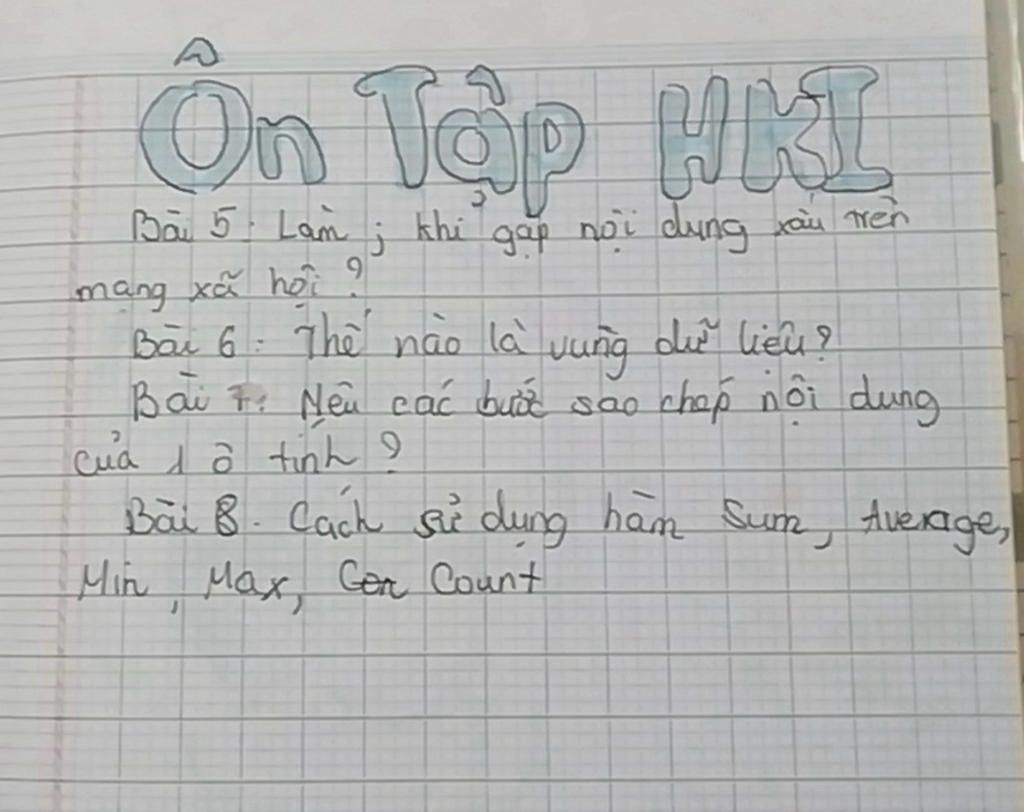 Ôn Tập HKI
Bài 5: Làm j khi gặp nội dung xấu trên
mạng xã hội?
Bài 6: Thế nào là vùng dữ liệu?
Bài 7: Nêu các bước sao chép nội dung
của 1 ô tính?
Bài 8. Cách sử dụng hàm Sum, Average,
Min, Max, Count